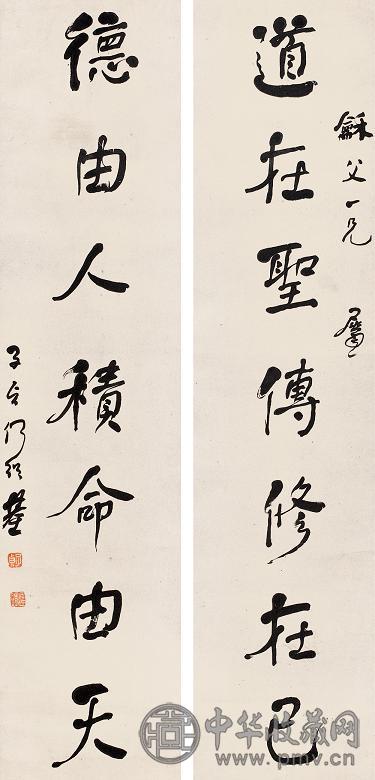 龢父一兄 屬
道在聖傳修在己
德由人積命由天
子貞何紹基
中华收藏网
www.pmv.cn